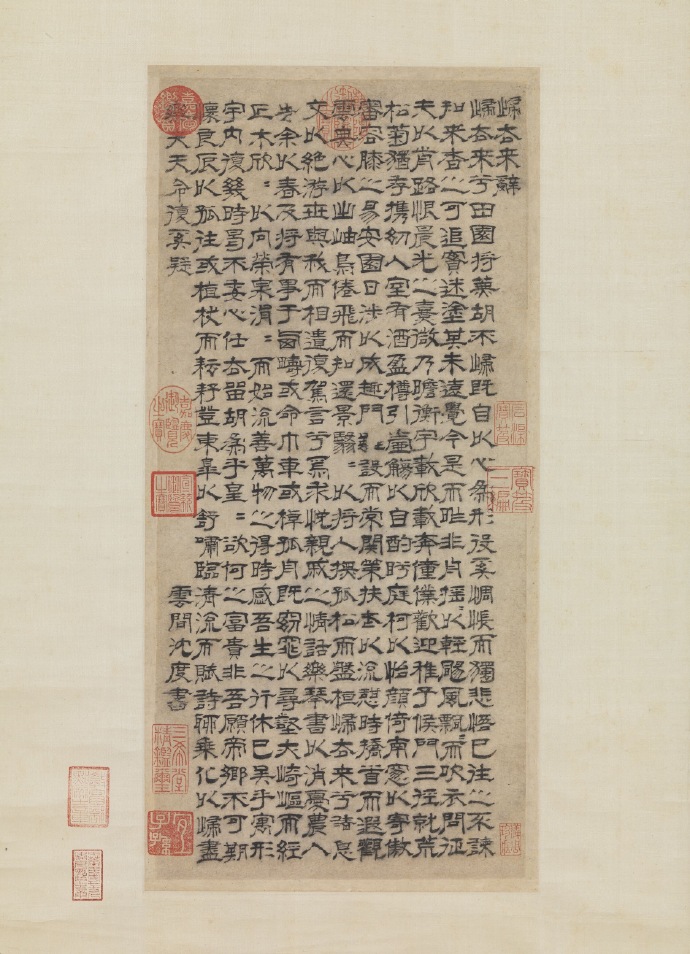 歸去來辭
歸去來兮田園將蕪胡不歸既自以心為形役奚惆悵而獨悲悟已往之不諫
知來者之可追實迷塗其未遠覺今是而昨非舟搖〻以輕颺風飄〻而吹衣問征
夫以前路恨晨光之熹微乃瞻衡宇載欣載奔僮僕歡迎稚子候門三徑就荒
松菊猶存攜幼入室有酒盈樽引壺觴以自酌眄庭柯以怡顏倚南窗以寄傲
審容膝之易安園日涉以成趣門雖設而常關策扶老以流憩時矯首而遐觀
雲無心以出岫鳥倦飛而知還景翳〻以將入撫孤松而盤桓歸去來兮請息
交以絕游世與我而相遺復駕言兮焉求悅親戚之情話樂琴書以消憂農人
告余以春及將有事于西疇或命巾車或棹孤舟既窈窕以尋壑亦崎嶇而經
丘木欣〻以向榮泉涓〻而始流善萬物之得時感吾生之行休已矣乎寓形
宇內復幾時曷不委心任去留胡為乎皇〻欲何之富貴非吾願帝鄉不可期
懷良辰以孤往或植杖而耘耔登東皋以舒嘯臨清流而賦詩聊乘化以歸盡
樂夫天命復奚疑
雲間沈度書
石渠寶笈
寶笈三編
嘉慶御覽之寶
宣統御覽之寶
三希堂精鑑璽
宜子孫